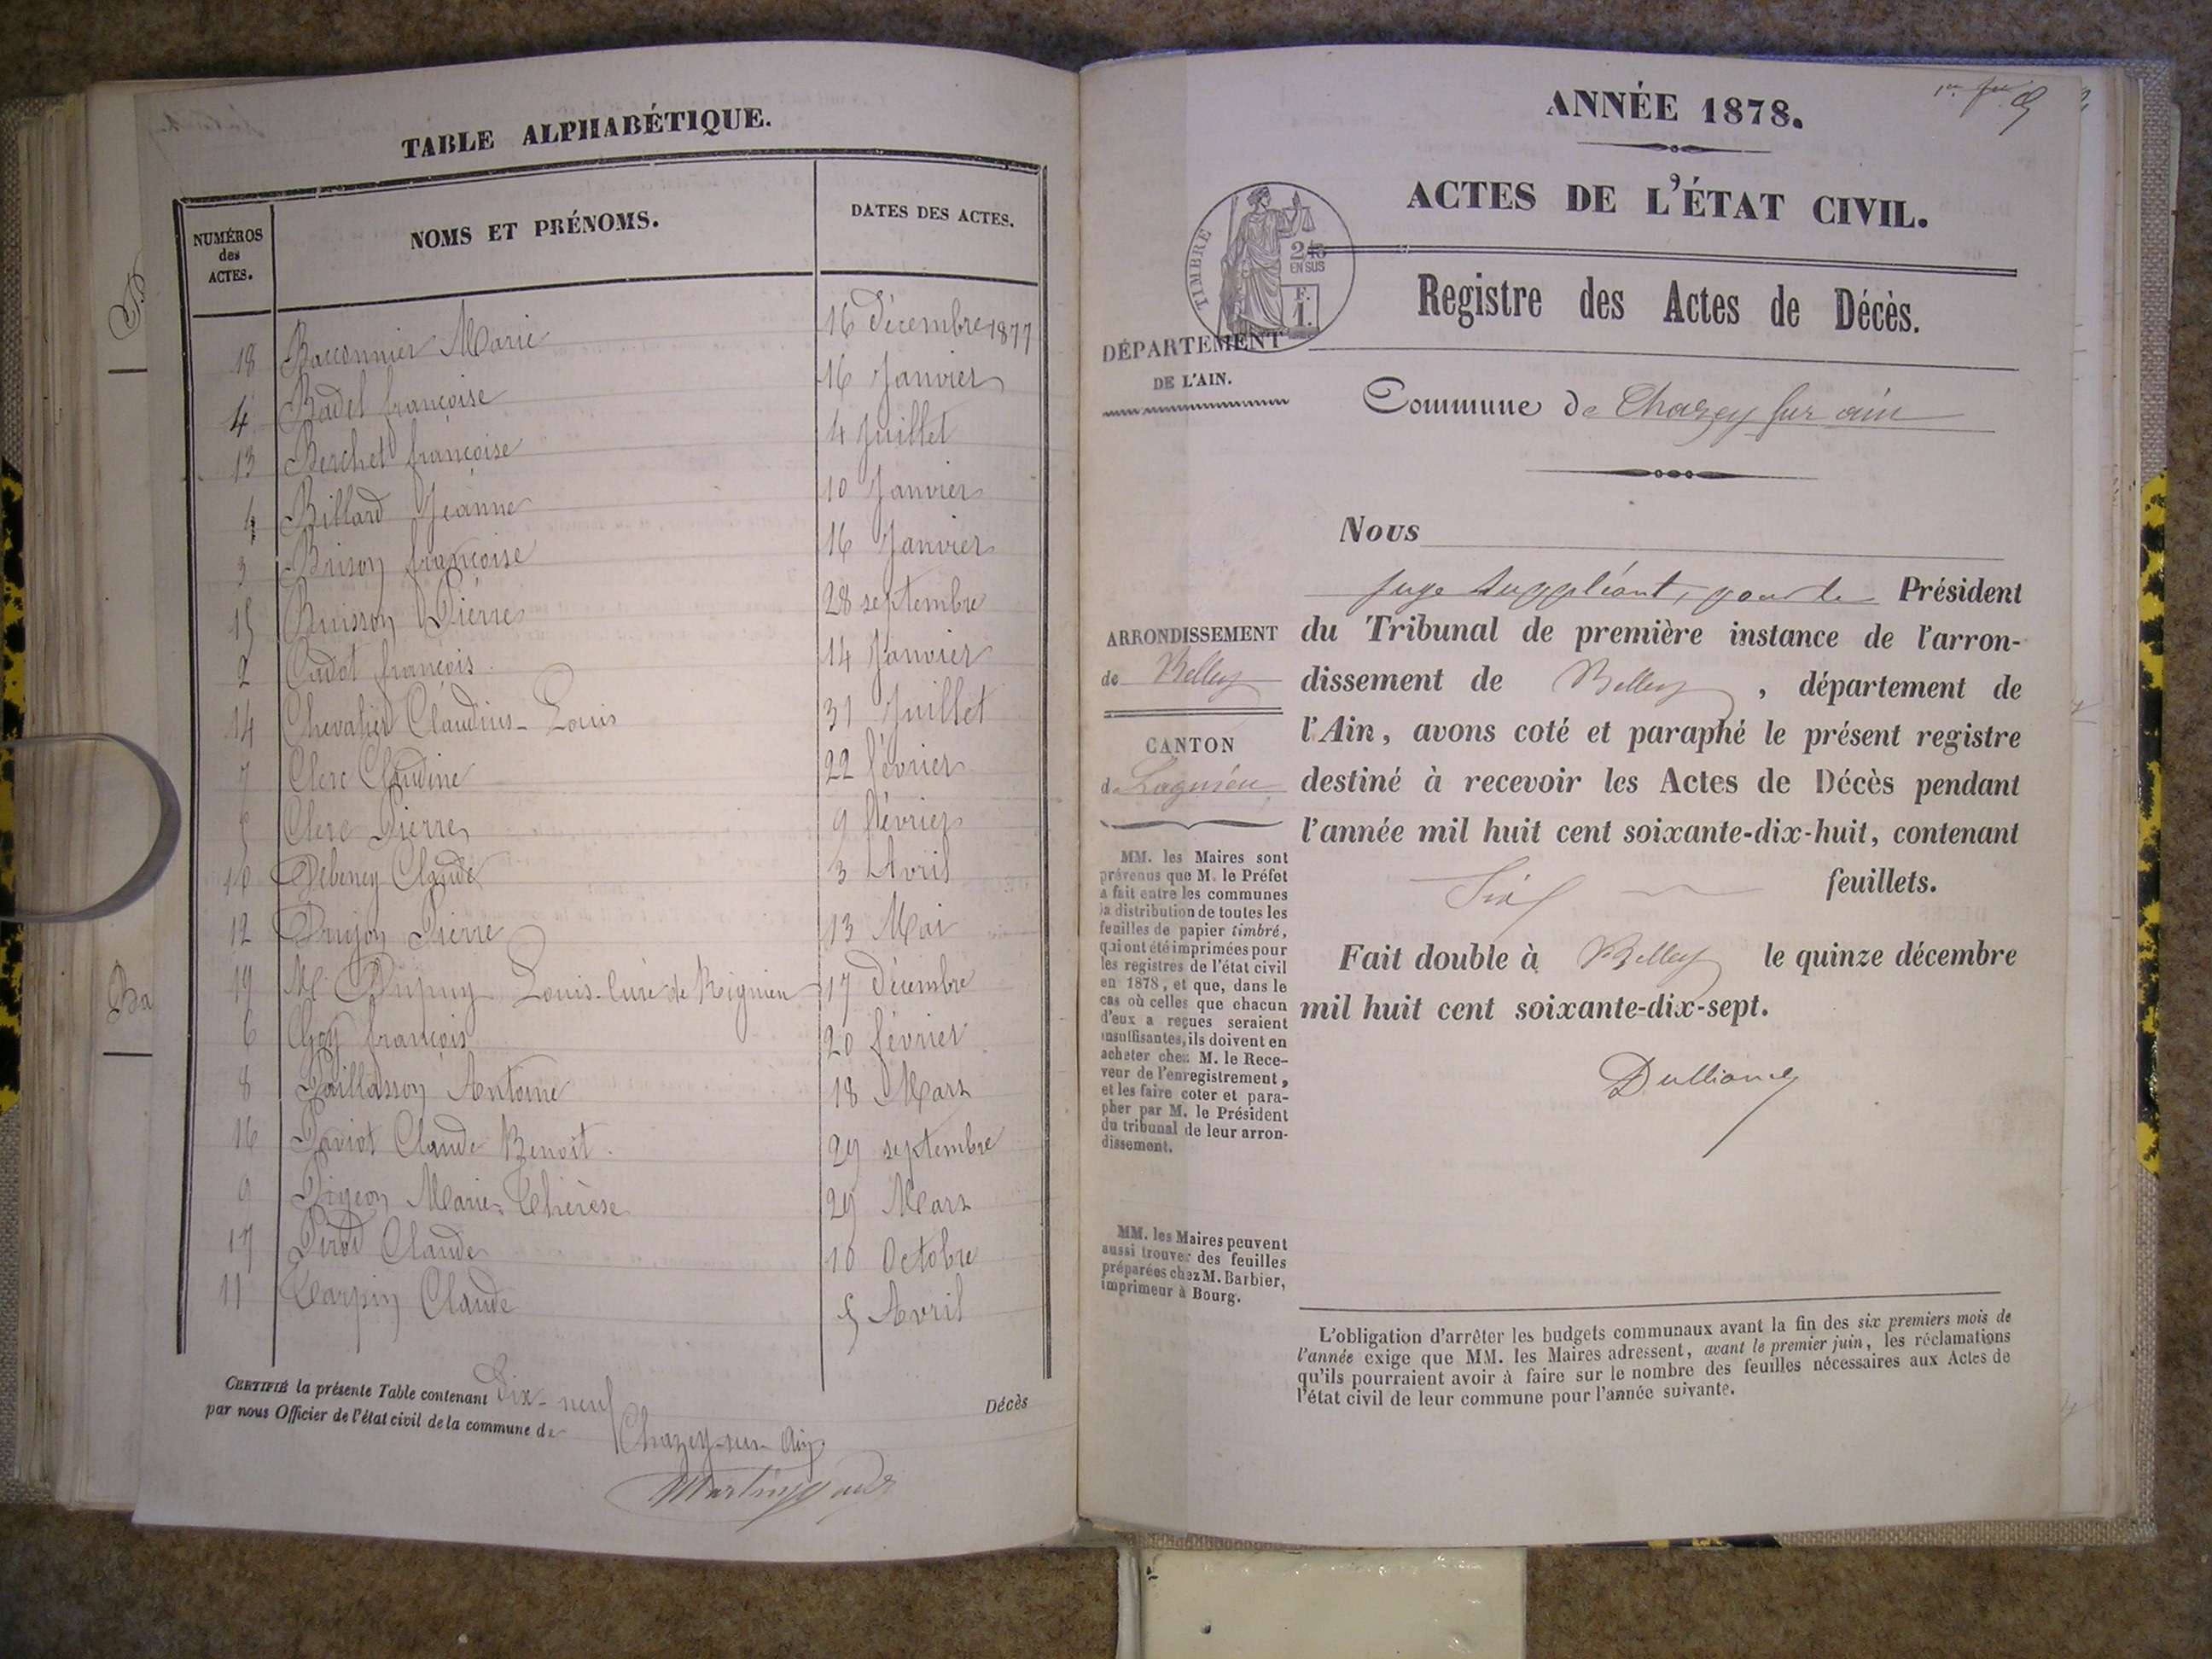 TABLE ALPHABÉTIQUE.
NUMÉROS des ACTES. NOMS ET PRÉNOMS. DATES DES ACTES.
18 Bacconnier Marie 16 Décembre 1877
4 Badel françoise 16 Janvier
13 Berchet françoise 4 Juillet
Billard Jeanne 10 Janvier
3 Brison françoise 16 Janvier
15 Buisson Pierre 28 septembre
2 Cadot françois 14 Janvier
14 Chevalier Claudius-Louis 31 Juillet
7 Clerc Claudine 22 février
5 Clerc Pierre 9 février
10 Debeney Claude 3 Avril
12 Drujon Pierre 13 Mai
19 Mr Dupuy Louis-Curé de Rignieu 17 Décembre
6 Goy françois 20 février
8 Paillasson Antoine 18 Mars
16 Paviot Claude Benoit 29 septembre
9 Pigeon Marie-Thérèse 29 Mars
17 Pirod Claude 10 Octobre
11 Tarpin Claude 5 Avril
CERTIFIÉ la présente Table contenant Dix-neuf Décès
par nous Officier de l'état civil de la commune de Chazey-sur-Ain
ANNÉE 1878.
ACTES DE L'ÉTAT CIVIL.
TIMBRE
2/10
EN SUS
F.
1.
Registre des Actes de Décès.
DÉPARTEMENT
DE L'AIN.
Commune de Chazey sur ain
Nous
Juge Suppléant, pour le Président
du Tribunal de première instance de l'arron-
dissement de Belley, département de
l'Ain, avons coté et paraphé le présent registre
destiné à recevoir les Actes de Décès pendant
l'année mil huit cent soixante-dix-huit, contenant
Six feuillets.
Fait double à Belley le quinze décembre
mil huit cent soixante-dix-sept.
ARRONDISSEMENT
de Belley
CANTON
de Lagnieu
MM. les Maires sont
prévenus que M. le Préfet
a fait entre les communes
la distribution de toutes les
feuilles de papier timbré,
qui ont été imprimées pour
les registres de l'état civil
en 1878, et que, dans le
cas où celles que chacun
d'eux a reçues seraient
insuffisantes, ils doivent en
acheter chez M. le Rece-
veur de l'enregistrement,
et les faire coter et para-
pher par M. le Président
du tribunal de leur arron-
dissement.
MM. les Maires peuvent
aussi trouver des feuilles
préparées chez M. Barbier,
imprimeur à Bourg.
L'obligation d'arrêter les budgets communaux avant la fin des six premiers mois de
l'année exige que MM. les Maires adressent, avant le premier juin, les réclamations
qu'ils pourraient avoir à faire sur le nombre des feuilles nécessaires aux Actes de
l'état civil de leur commune pour l'année suivante.